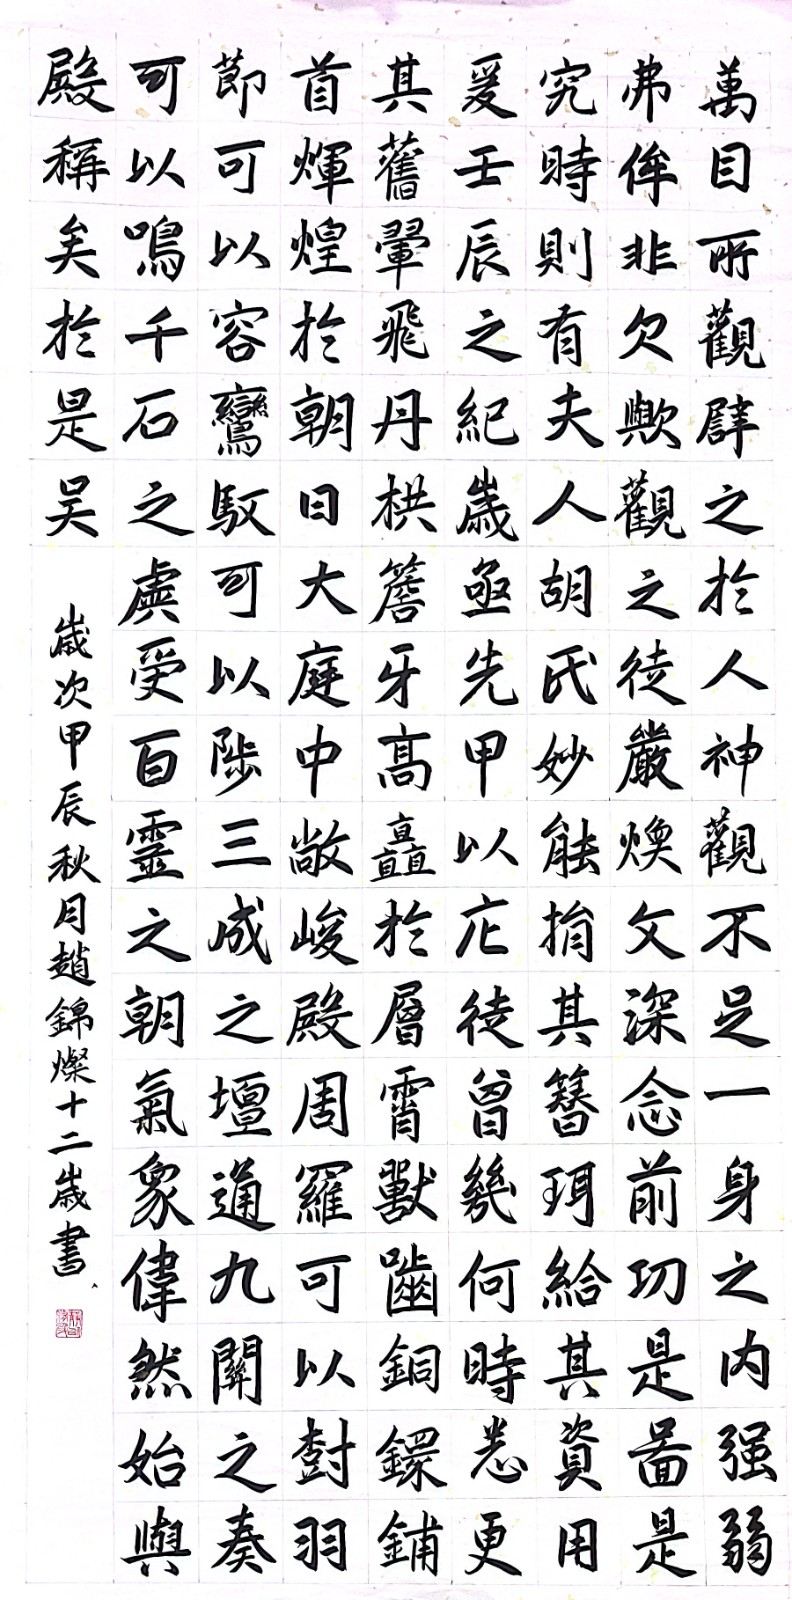 萬目所觀辟之於人神觀不足一身之内强弱
弗侔非欠歟觀之徒嚴煥文深念前功是啚是
究時則有夫人胡氏妙能捐其簪珥給其資用
爰壬辰之紀歲亟先甲以庀徒曾幾何時悉更
其舊翬飛丹栱簷牙高矗於層霄獸嚙銅鐶鋪
首煇煌於朝日大庭中敞峻殿周羅可以樹羽
節可以容鸞馭可以陟三成之壇通九關之奏
可以鳴千石之虡受百靈之朝氣象偉然始與
殿稱矣於是吴
歲次甲辰秋月趙錦燦十二歲書